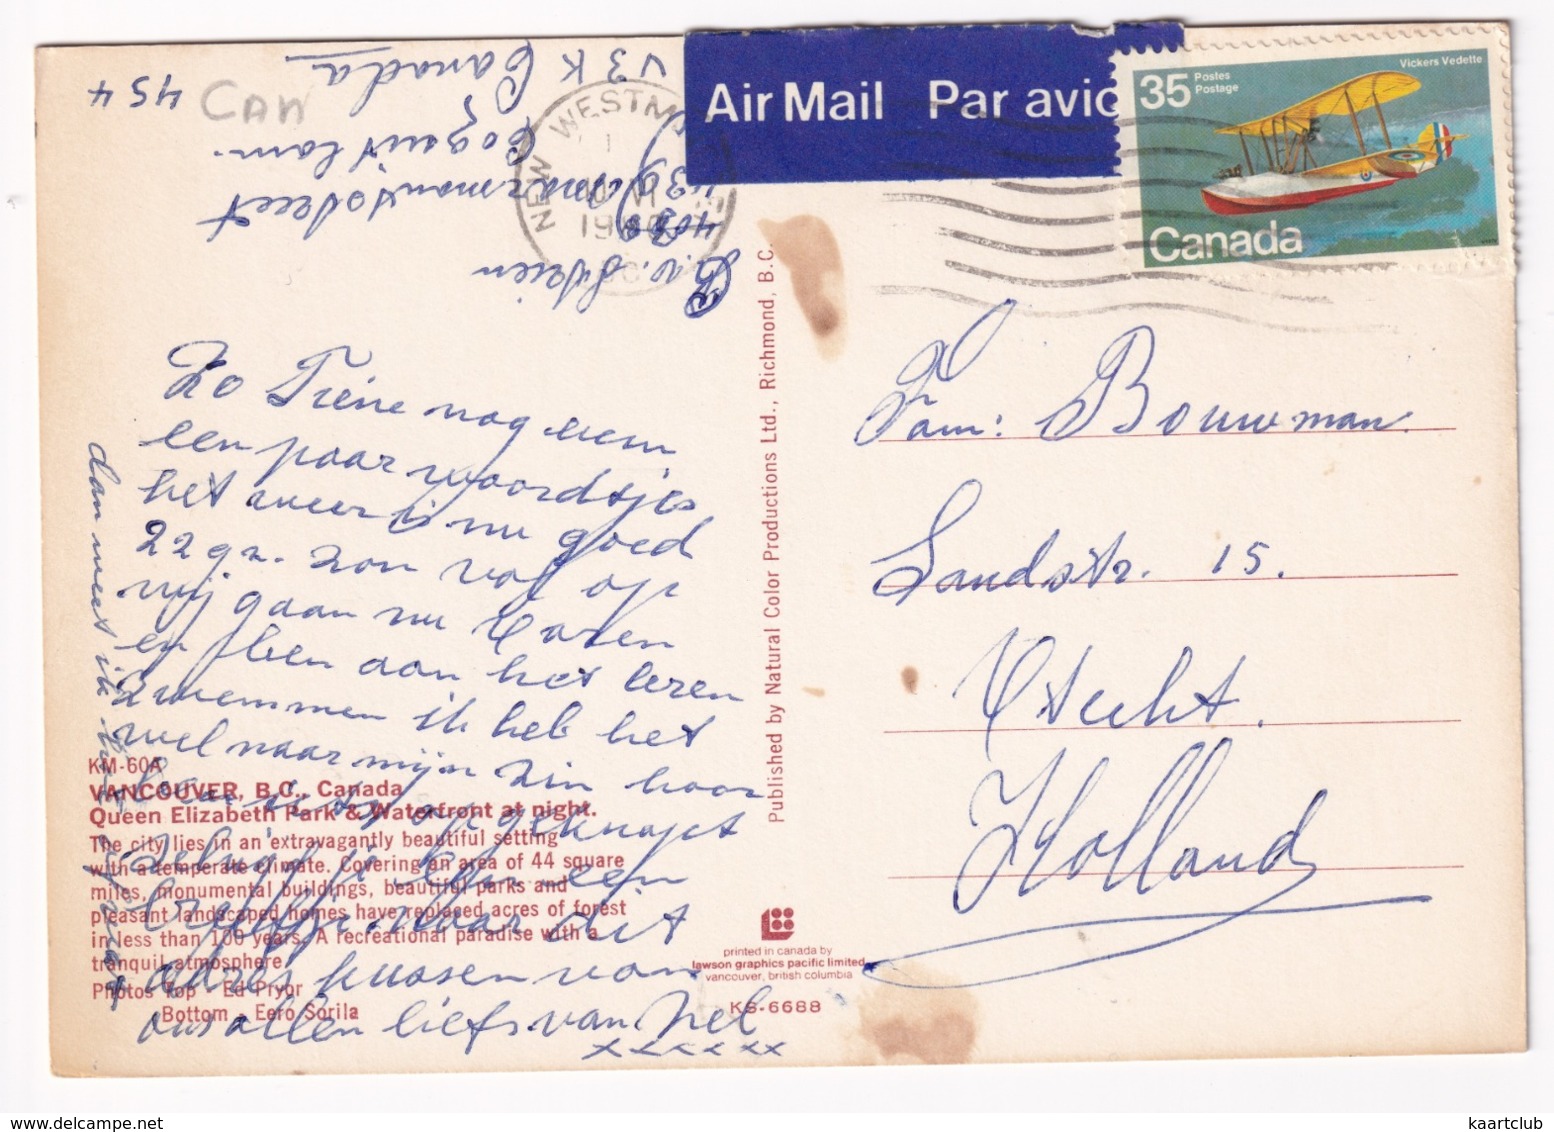 Air Mail Par avio
35 Postes
Postage
Vickers Vedette
Canada
NEW WESTM
CAN
B.v.
4030
1139 Marmont street
Coquitlam.
V3K 4S4
Canada
Zo Tiene nog even
een paar woordtjes
het weer is nu goed
22 gr. zon vol op
wij gaan nu Coren
en Ben aan het leren
zwemmen ik heb het
wel naar mijn zin hoor
opgeknapt
een
briefje naar dit
adres kussen van
ons allen liefs van Nel
xxxxxxx
dan weet ik
Fam: Bouwman.
Landstr. 15.
Utrecht.
Holland
KM-60A
VANCOUVER, B.C., Canada
Queen Elizabeth Park & Waterfront at night.
The city lies in an extravagantly beautiful setting
with a temperate climate. Covering an area of 44 square
miles, monumental buildings, beautiful parks and
pleasant landscaped homes have replaced acres of forest
in less than 100 years. A recreational paradise with a
tranquil atmosphere.
Photos Top - Ed Pryor
Bottom - Eero Sorila
Published by Natural Color Productions Ltd., Richmond, B.C.
printed in canada by
lawson graphics pacific limited
vancouver, british columbia
KS-6688
www.delcampe.net
kaartclub